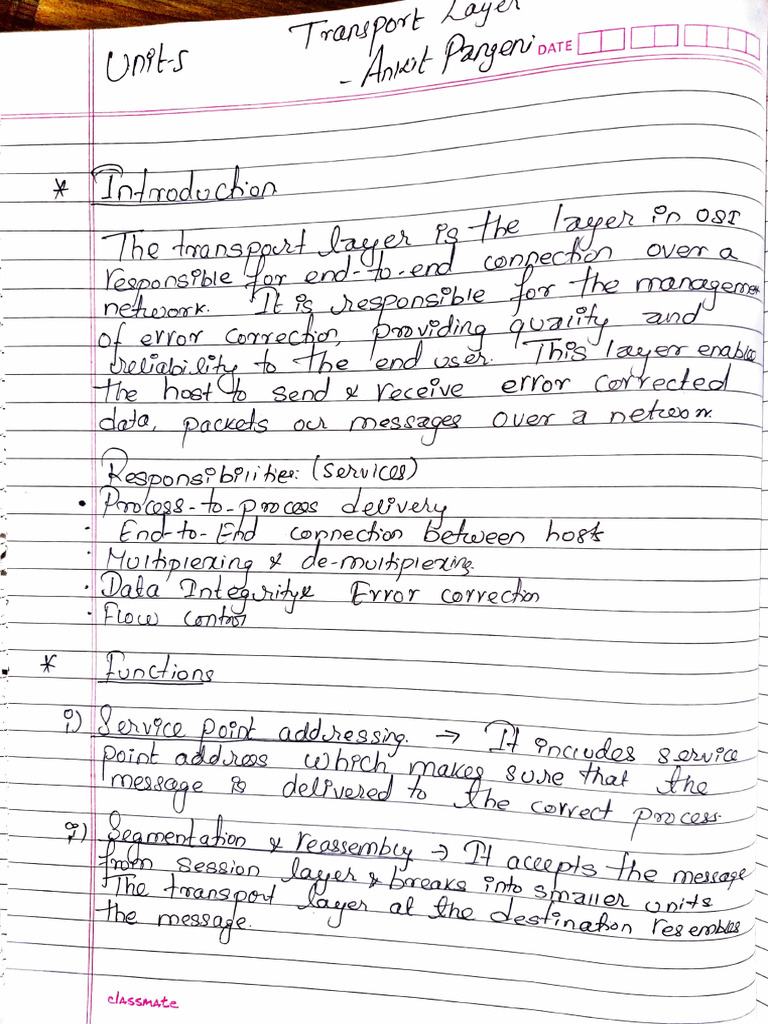 Transport Layer
Unit-5
- Ankit Pangeni
DATE
* Introduction
The transport layer is the layer in OSI
responsible for end-to-end connection over a
network. It is responsible for the managemen
of error correction, providing quality and
reliability to the end user. This layer enables
the host to send & receive error corrected
data, packets or messages over a network.
Responsibilities: (services)
• Process-to-process delivery
• End-to-End connection between hosts
• Multiplexing & de-multiplexing.
• Data Integrity & Error correction
• Flow control
* Functions
i) Service point addressing. → It includes service
point address which makes sure that the
message is delivered to the correct process.
ii) Segmentation & reassembly → It accepts the message
from session layer & breaks into smaller units
The transport layer at the destination resembles
the message.
classmate